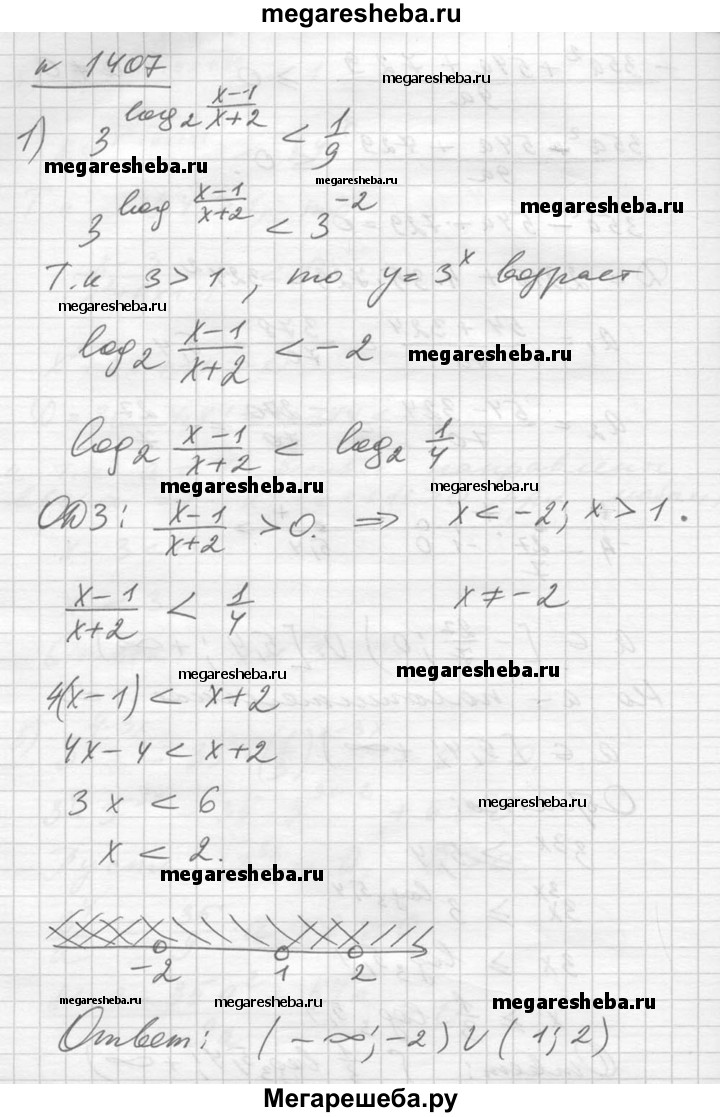 megaresheba.ru
н 1407
megaresheba.ru
1) 3^(log₂ (x-1)/(x+2)) < 1/9
megaresheba.ru
megaresheba.ru
3^(log (x-1)/(x+2)) < 3^(-2)
megaresheba.ru
Т.к 3 > 1, то y = 3^x возраст
megaresheba.ru
log₂ (x-1)/(x+2) < -2
megaresheba.ru
log₂ (x-1)/(x+2) < log₂ 1/4
megaresheba.ru
megaresheba.ru
ОДЗ: (x-1)/(x+2) > 0. ⇒ x < -2; x > 1.
(x-1)/(x+2) < 1/4 x ≠ -2
megaresheba.ru
megaresheba.ru
4(x-1) < x+2
4x-4 < x+2
3x < 6
megaresheba.ru
x < 2.
megaresheba.ru
-2 1 2
megaresheba.ru
megaresheba.ru
megaresheba.ru
Ответ: (-∞; -2) ∪ (1; 2)
Мегарешеба.ру